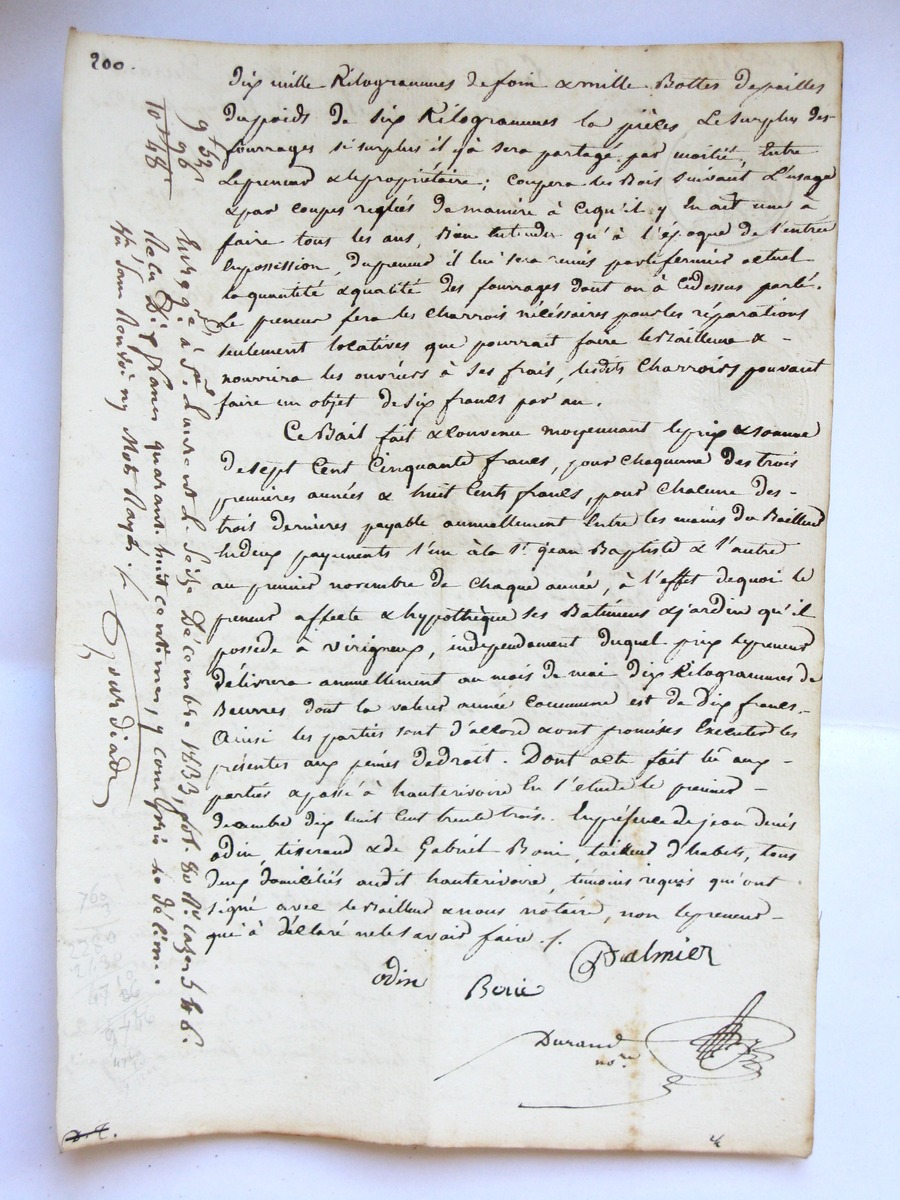 200.
dix mille Kilogrammes de foin & mille Bottes de pailles
du poids de six Kilogrammes la pièces Le surplus des
fourrages si surplus il y à sera partagé par moitié, Entre
Le preneur & le propriétaire; coupera les Bois suivant L'usage
& par coupes reglés de maniere à ce qu'il y En ait une à
faire tous les ans, Bien Entendu qu'à l'époque de l'entrée
En possession, du preneur il lui sera remis par le fermier actuel
la quantité & qualité des fourrages dont on à ci dessus parlé.
Le preneur fera les charrois nécéssaires pour les réparations
seulement locatives que pourrait faire le Bailleur &
nourrira les ouvriers à ses frais, lesdits Charrois pouvant
faire un objet de six francs par an.
Ce Bail fait & convenu moyennant le prix & somme
de sept Cent Cinquante francs, pour chaqcune des trois
premieres années & huit Cents francs, pour chacune des
trois dernieres payable annuellement Entre les mains du Bailleur
En deux payements l'un à la St. jean Baptiste & l'autre
au premier novembre de chaque année, à l'effet de quoi le
preneur affecte & hypothèque ses Batimens & jardin qu'il
possede à virigneux, independament duquel prix le preneur
délivrera annuellement au mois de mai dix Kilogrammes de
Beurres dont la valeur année commune est de Dix francs.
Ainsi les parties sont d'accord & ont promises Executer les
présentes aux peines de droit. Dont acte fait lû aux
parties & passé à hauterivoire En l'etude le premier
décembre dix huit Cent trente trois. En présence de jean denis
odin, tisserand & de Gabriel Berie, tailleur d'habits, tous
deux domiciliés audit hauterivoire, témoins requis qui ont
signé avec le Bailleur & nous notaire, non le preneur
qui à déclaré ne le savoir faire ./.
Palmier
odin Berie
Durand
nore.
9f 52c
96
10 48
Enregé à St. Laurent le seize Décembre 1833, fol. 80 Ro. cazes 5 & 6.
Reçu Dix francs quarante huit centimes, y compris le décime.